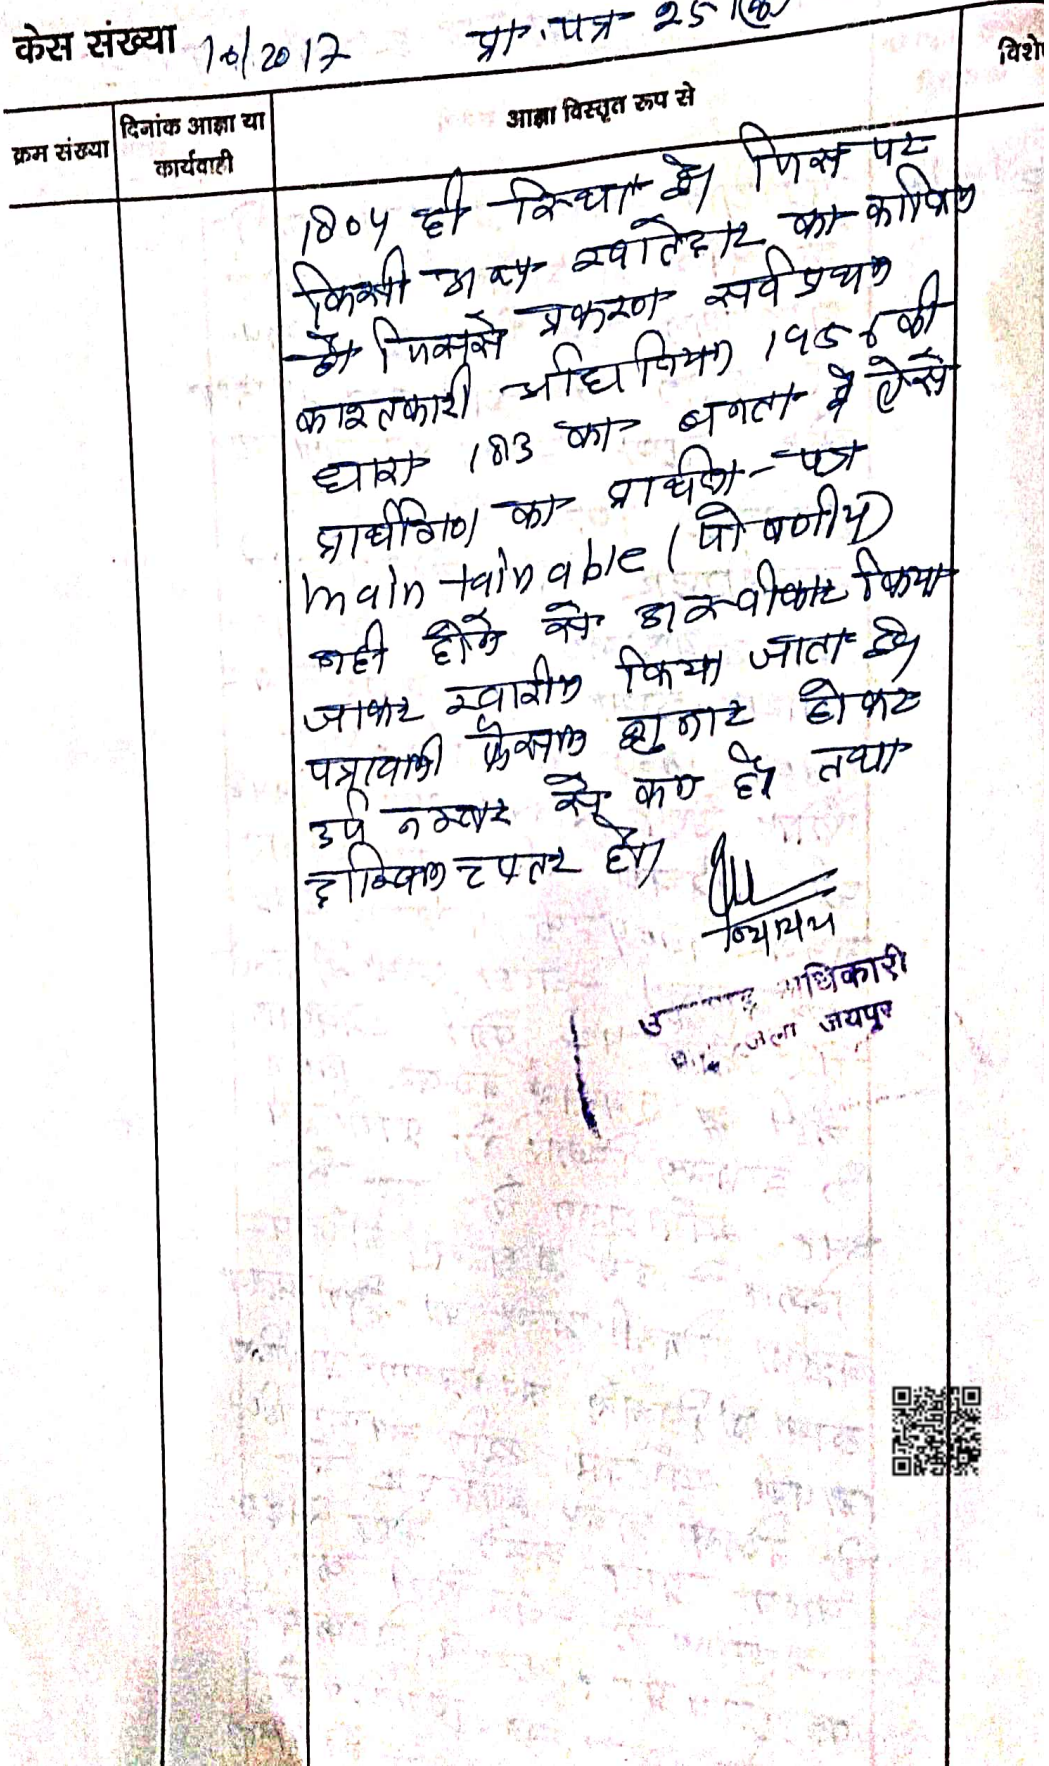 केस संख्या 10/2017 प्रा. पत्र 25
विशे
क्रम संख्या
दिनांक आज्ञा या
कार्यवाही
आज्ञा विस्तृत रूप से
1804 ही है। जिस पर
किसी अन्य खातेदार का काबिज
है जिससे प्रकरण सर्वप्रथम
काश्तकारी अधिनियम 1956 की
धारा 183 का बनता है ऐसे
प्रार्थीगण का प्रार्थना-पत्र
maintainable (पोषणीय)
नही होने से अस्वीकार किया
जाकर खारीज किया जाता है।
पत्रावली फैसल शुमार होकर
नम्बर से कम हो तथा
दाखिल दफ्तर हो।
अधिकारी
जिला जयपुर